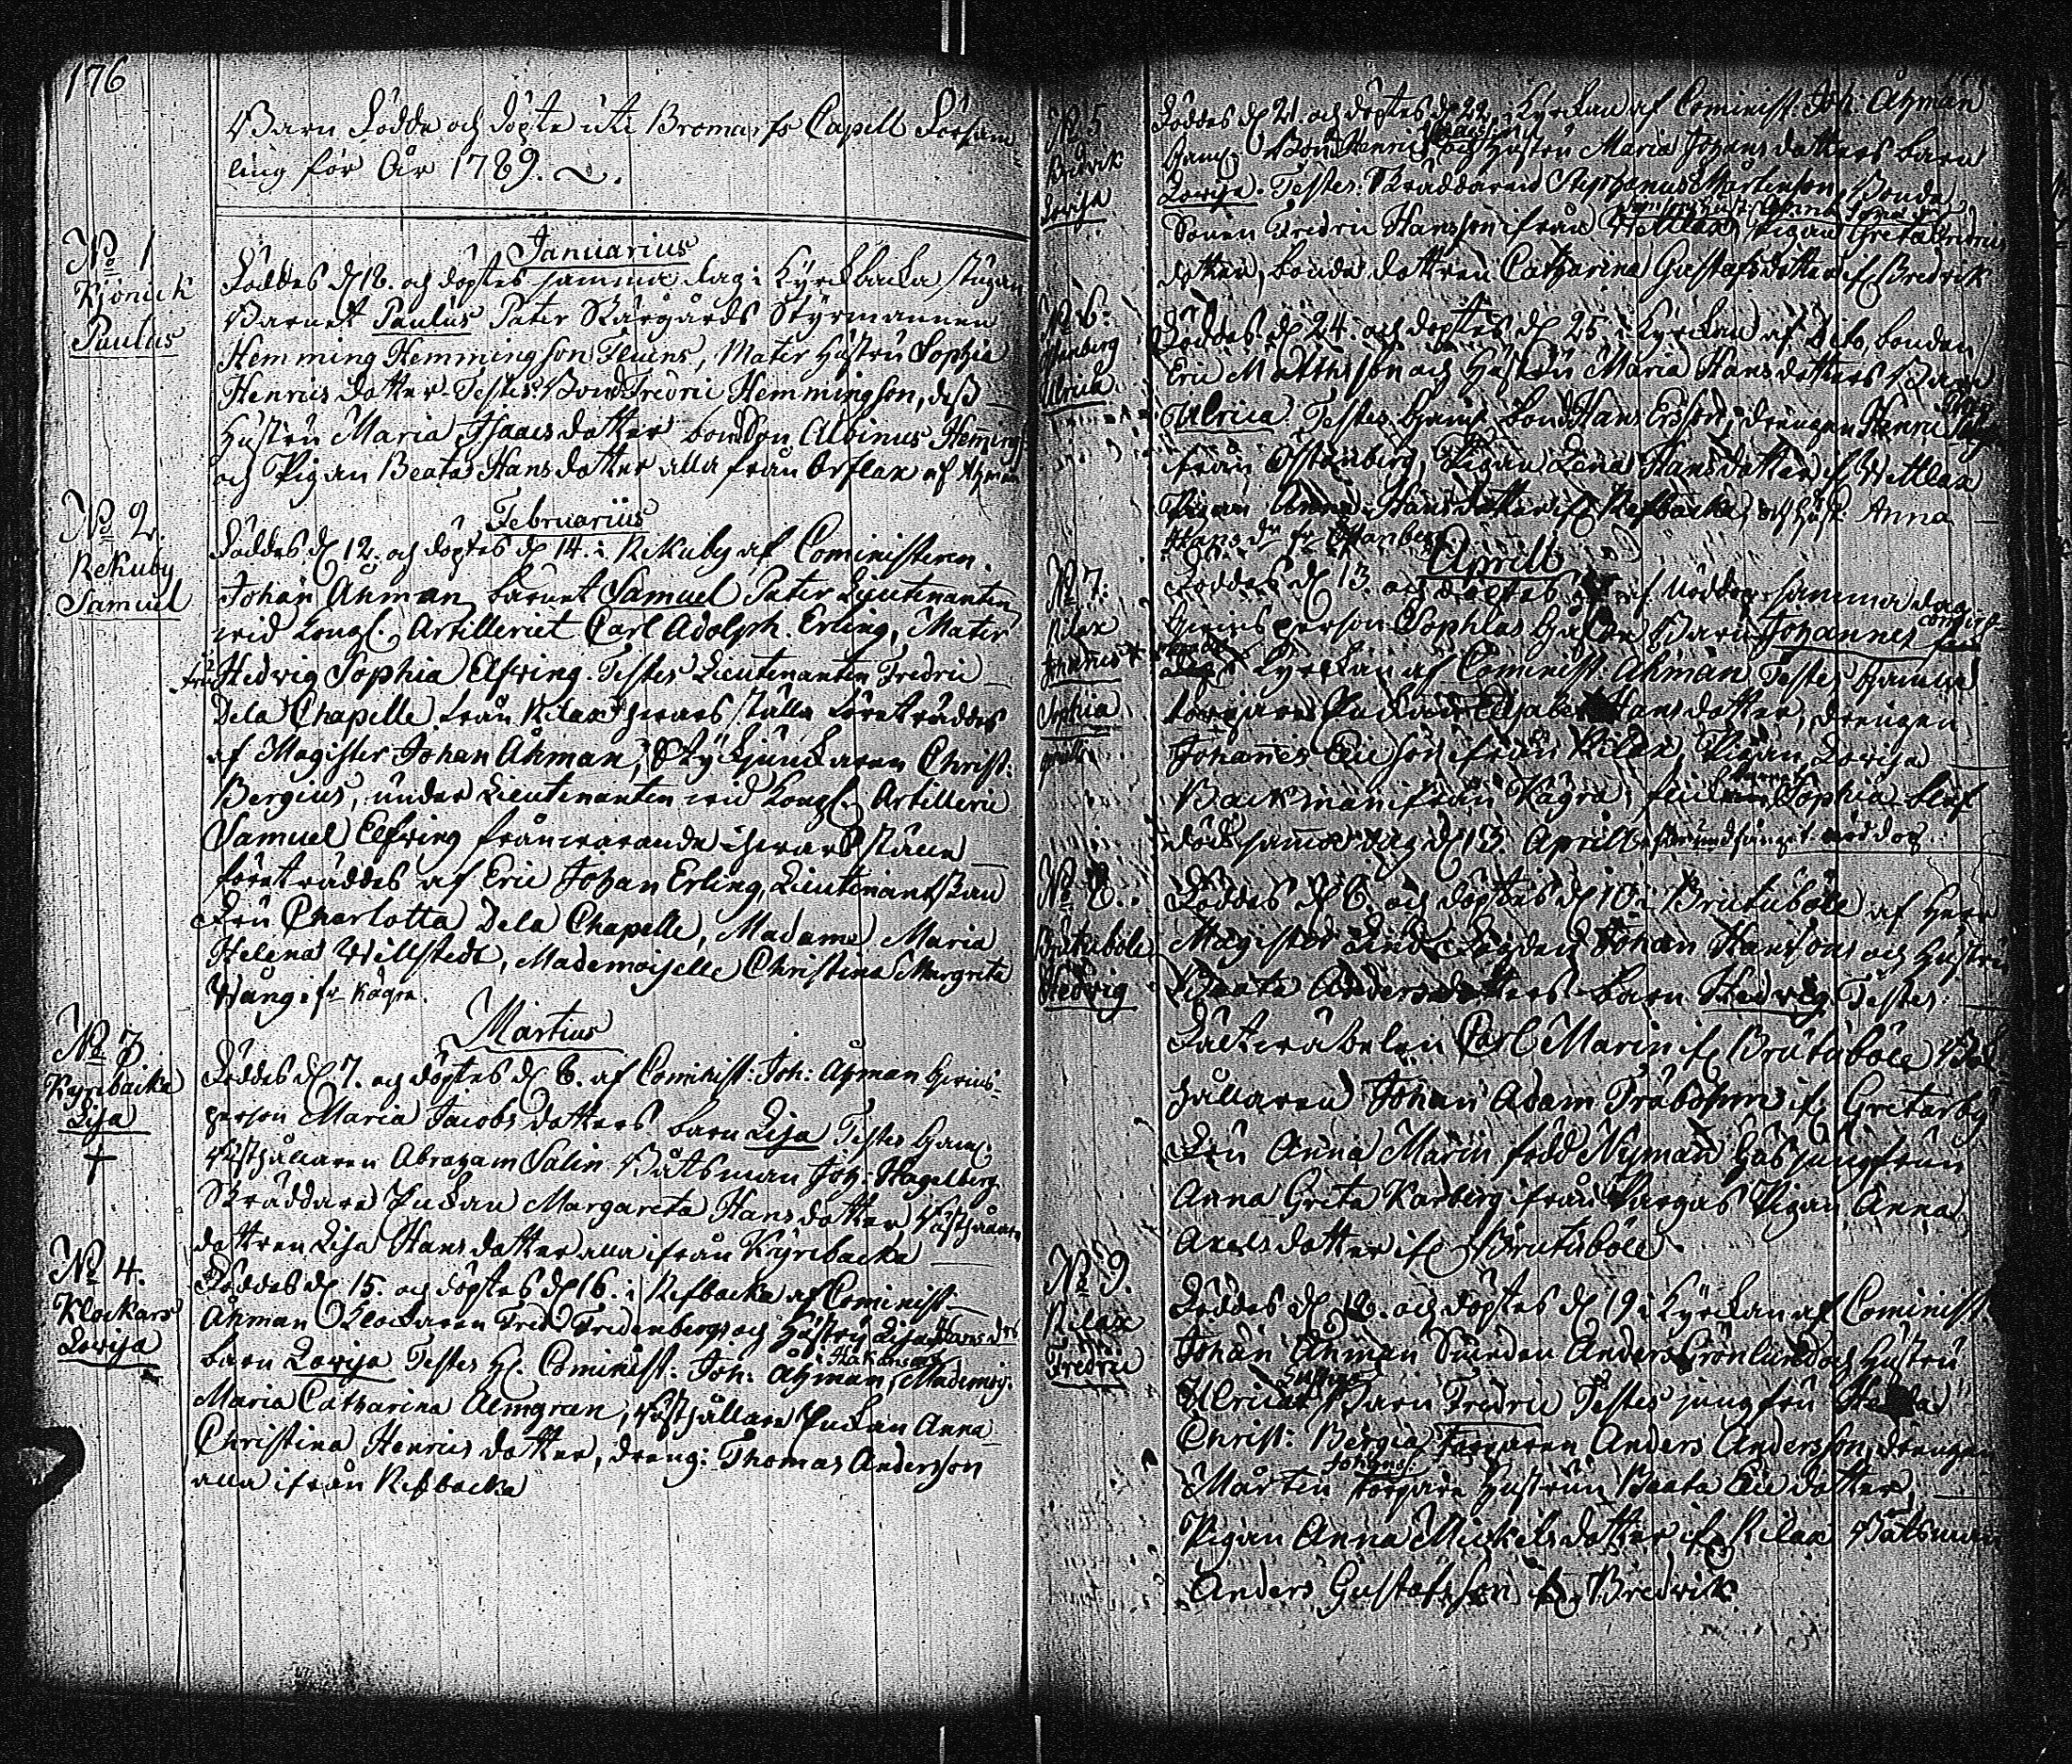 176
Barn Födde och döpte uti Bromarfs Capell Församling
ling för År 1789.
Januarius
No 1
Kjönick
Paulus
Föddes d 18. och döptes samma dag i Kyrckbacka stugan
Barnet Paulus Pater Skärgårds Styrmannen
Hemming Hemmingson Fluens, Mater Hustru Sophia
Henrics dotter Testes: Bond Fredric Hemmingson, dess
Hustru Maria Isaacs dotter bondSon Albinus Hemmings
och Pigan Beata Hans dotter alla från Orslax af Åhman
Februarius
No 2.
Rekuby
Samuel
Föddes d 12. och döptes d 14. i Rekuby af Cominstern
Johan Åhman barnet Samuel Pater Lieutenanten
wid Kongl. Artilleriet Carl Adolph Erling, Mater
fru Hedwig Sophia Elfving. Testes Lieutenanten Fredric
Dela Chapelle från Rilax hwars ställe företräddes
af Magister Johan Åhman, Styckjunckaren Christ:
Bergius, under Lieutenanten wid Kongl. Artillerie
Samuel Elfving frånwarande hwars ställe
företräddes af Eric Johan Erling, Lieutenantskan
Fru Charlotta Dela Chapelle, Madame Maria
Helena Willstedt, Mademoiselle Christina Margreta
Wång fr Kågra.
Martius
No 3
Kyrcbacka
Lisa
†
Föddes d 7. och döptes d 8. af Cominist: Joh: Åhman
person Maria Jacobs dotters barn Lisa Testes
Abraham Salin Båtsman Joh: Hagelberg
Skräddare Enckan Margareta Hans dotter,
dottren Lisa Hans dotter alla ifrån Kyrcbacka
No 4.
Klockars
Lovisa
Föddes d 15. och döptes d 16. i Refbacka af Cominist.
Åhman Klockaren Fred Fredenbergs och Hustru Lisa Hans drs
barn Lovisa Testes H. Cominist: Joh: Åhman, Mademois:
Maria Catharina Almgren, Enckan Anna
Christina Henrics dotter, dreng: Thomas Andersson
alla ifrån Refbacka
No 5
Bredvik
Lovisa
Föddes d 21. och döptes d 22, i Kyrckan af Cominist. Joh: Åhman
Bond Henric och Hustru Maria Johans dotters barn
Lovisa. Testes: Skräddaren Stephanus Mårtenson, Bonde
Sonen Fredric Hansson ifrån Wettlax Pigan Greta Fredrics
dotter, bonde dottren Catharina Gustafs dotter if Bredvik
No 6.
Östanberg
Ulrica
Föddes d 24. och döptes d 25. i Kyrckan af Dito, bonden
Eric Matthsson och Hustru Maria Hans dotters Barn
Ulrica Testes bond Hans Ersson, drengen Henric
ifrån Östanberg, Pigan Lena Hans dotter if Wettlax
Pigan Anna Hans dotter if Refbacka, och Hust: Anna
Hans dr fr Östanberg
Aprill
No 7.
Rilax
Johannes
Sophia
Föddes d 13. och döptes af samma dag
person Sophias Barn Johannes
Kyrckan af Cominist: Åhman Testes Gamla
Enckan Elisabet Hans dotter, drengen
Johannes Ericson ifrån Rilax, Pigan Lovisa
Backman ifrån Kågra, Sophia blef
död samma dag d 13. Aprill
No 8.
Brutuböle
Hedvig
Föddes d 6. och döptes d 10 i Brutuböle af Herr
Magister Lind Johan Hansons och Hustru
Beata Anders dotters barn Hedvig Testes
Carl Marin if Brutuböle
hållaren Johan Adam Fröbohm if Gretarby
Fru Anna Marin född Nyman Hus jungfrun
Anna Greta Karberg ifrån Pargas Pigan Anna
Axels dotter if Brutuböle.
No 9.
Rilax
Fredric
Föddes d 18. och döptes d 19 i Kyrckan af Cominist:
Johan Åhman Smeden Anders Grönlund och Hustru
Ulricas Barn Fredric Testes jungfru
Christ: Bergia, Anders Andersson, drengen
Mårten Johans: torpare Hustrun Beata Eric dotter,
Pigan Anna Mickels dotter if Rilax Båtsman
Anders Gustafsson if Bredvik